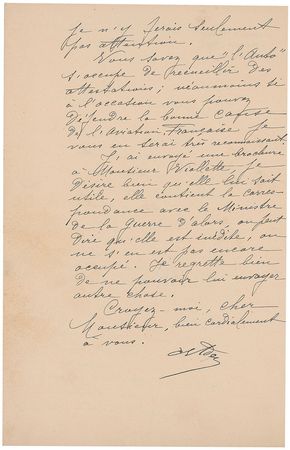 je n'y ferais seulement
pas attention.
Vous savez que "l'Auto"
s'occupe de recueillir des
attestations ; néanmoins si
à l'occasion vous pouvez
défendre la bonne cause
de l'Aviation Française je
vous en serai très reconnaissant.
J'ai envoyé une brochure
à Monsieur Viollette je
désire bien qu'elle lui soit
utile, elle contient la corres-
pondance avec le Ministre
de la Guerre d'alors, on peut
dire qu'elle est inédite, on
ne s'en est pas encore
occupé. Je regrette bien
de ne pouvoir lui envoyer
autre chose.
Croyez-moi, cher
Monsieur, bien cordialement
à vous.